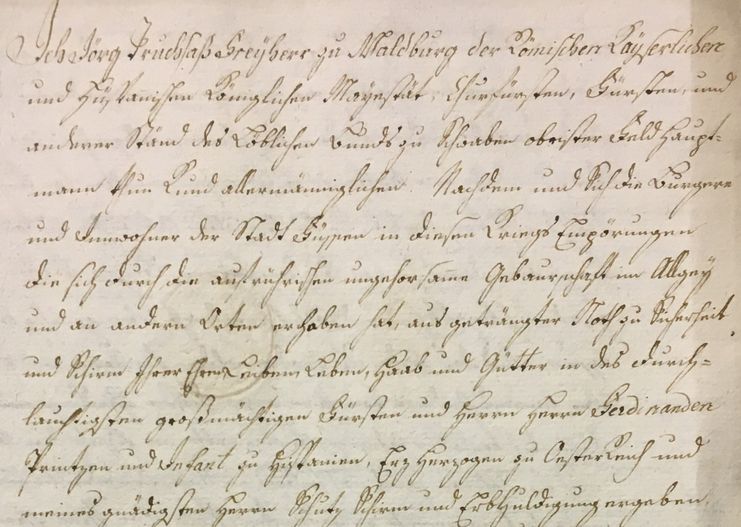 Ich Jörg Truchsaß Freyherr zu Waldburg der Römischen Kayserlichen
und Hyspanischen Königlichen Mayestät, Churfürsten, Fürsten, und
anderer Ständ des Löblichen Bunds zu Schwaben obrister Feld Haupt-
mann thun Kund allermänniglichen. Nachdem und Sich die Burgere
und Innwohner der Stadt Füssen in diesen Kriegs Empörungen
die sich durch die aufrührischen ungehorsamme Gebaurschaft im Allgey
und an andern Orten erhoben hat, aus geträngter Noth zu Sicherheit
und Schirm Ihrer Ehren Leiben, Leben, Haab und Gütter in des durch-
lauchtigsten großmächtigen Fürsten und Herrn Herrn Ferdinanden
Printzen und Infant zu Hispanien, Erz Herzogen zu Oesterreich und
meines gnädigsten Herrn Schutz Schirm und Erbhuldigung ergeben